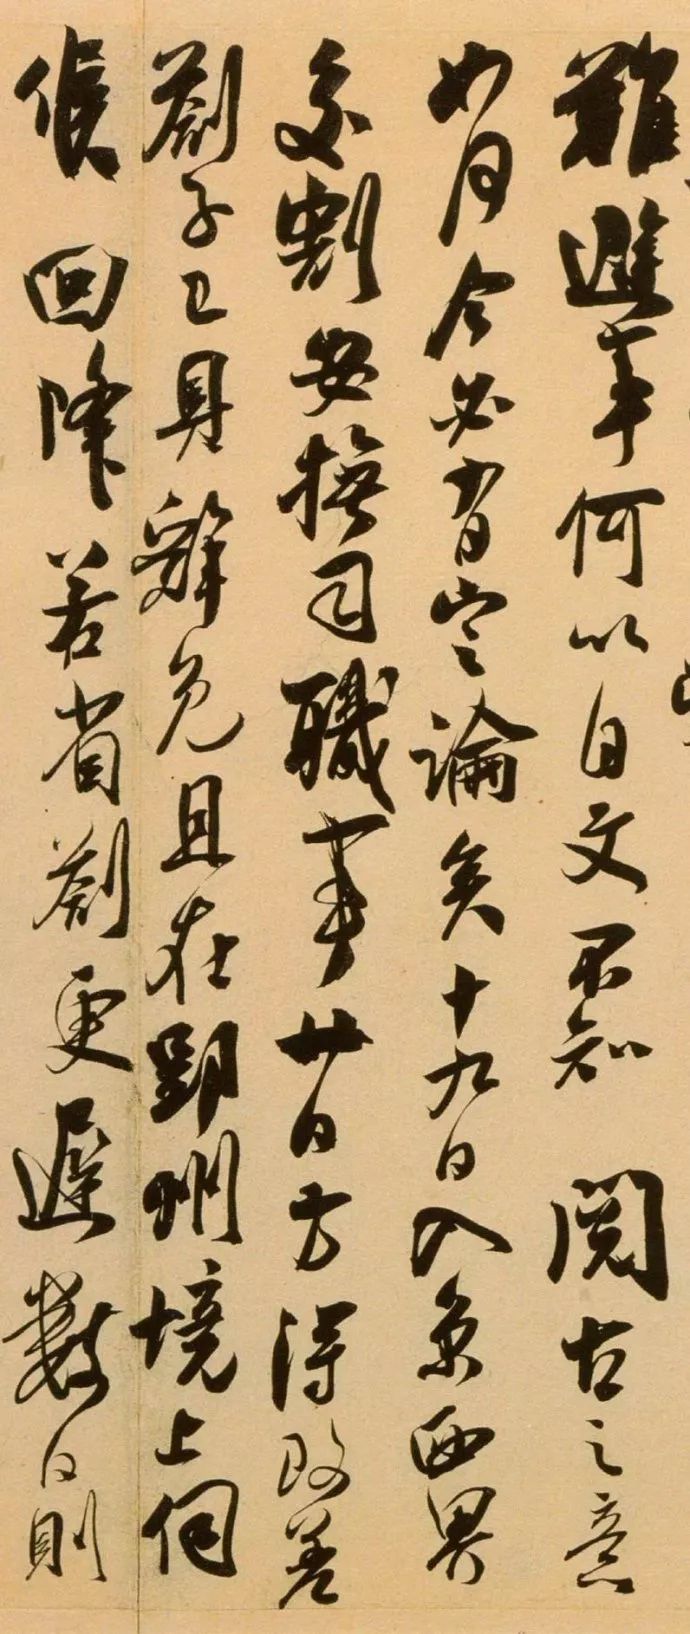 難避事何以自文不知 閱古之意
如何今必有定論矣十九日入京西界
交割安撫司職事廿日方得改差
劄子已具辭免且在郢州境上伺
候 回降若省劄更遲數日則